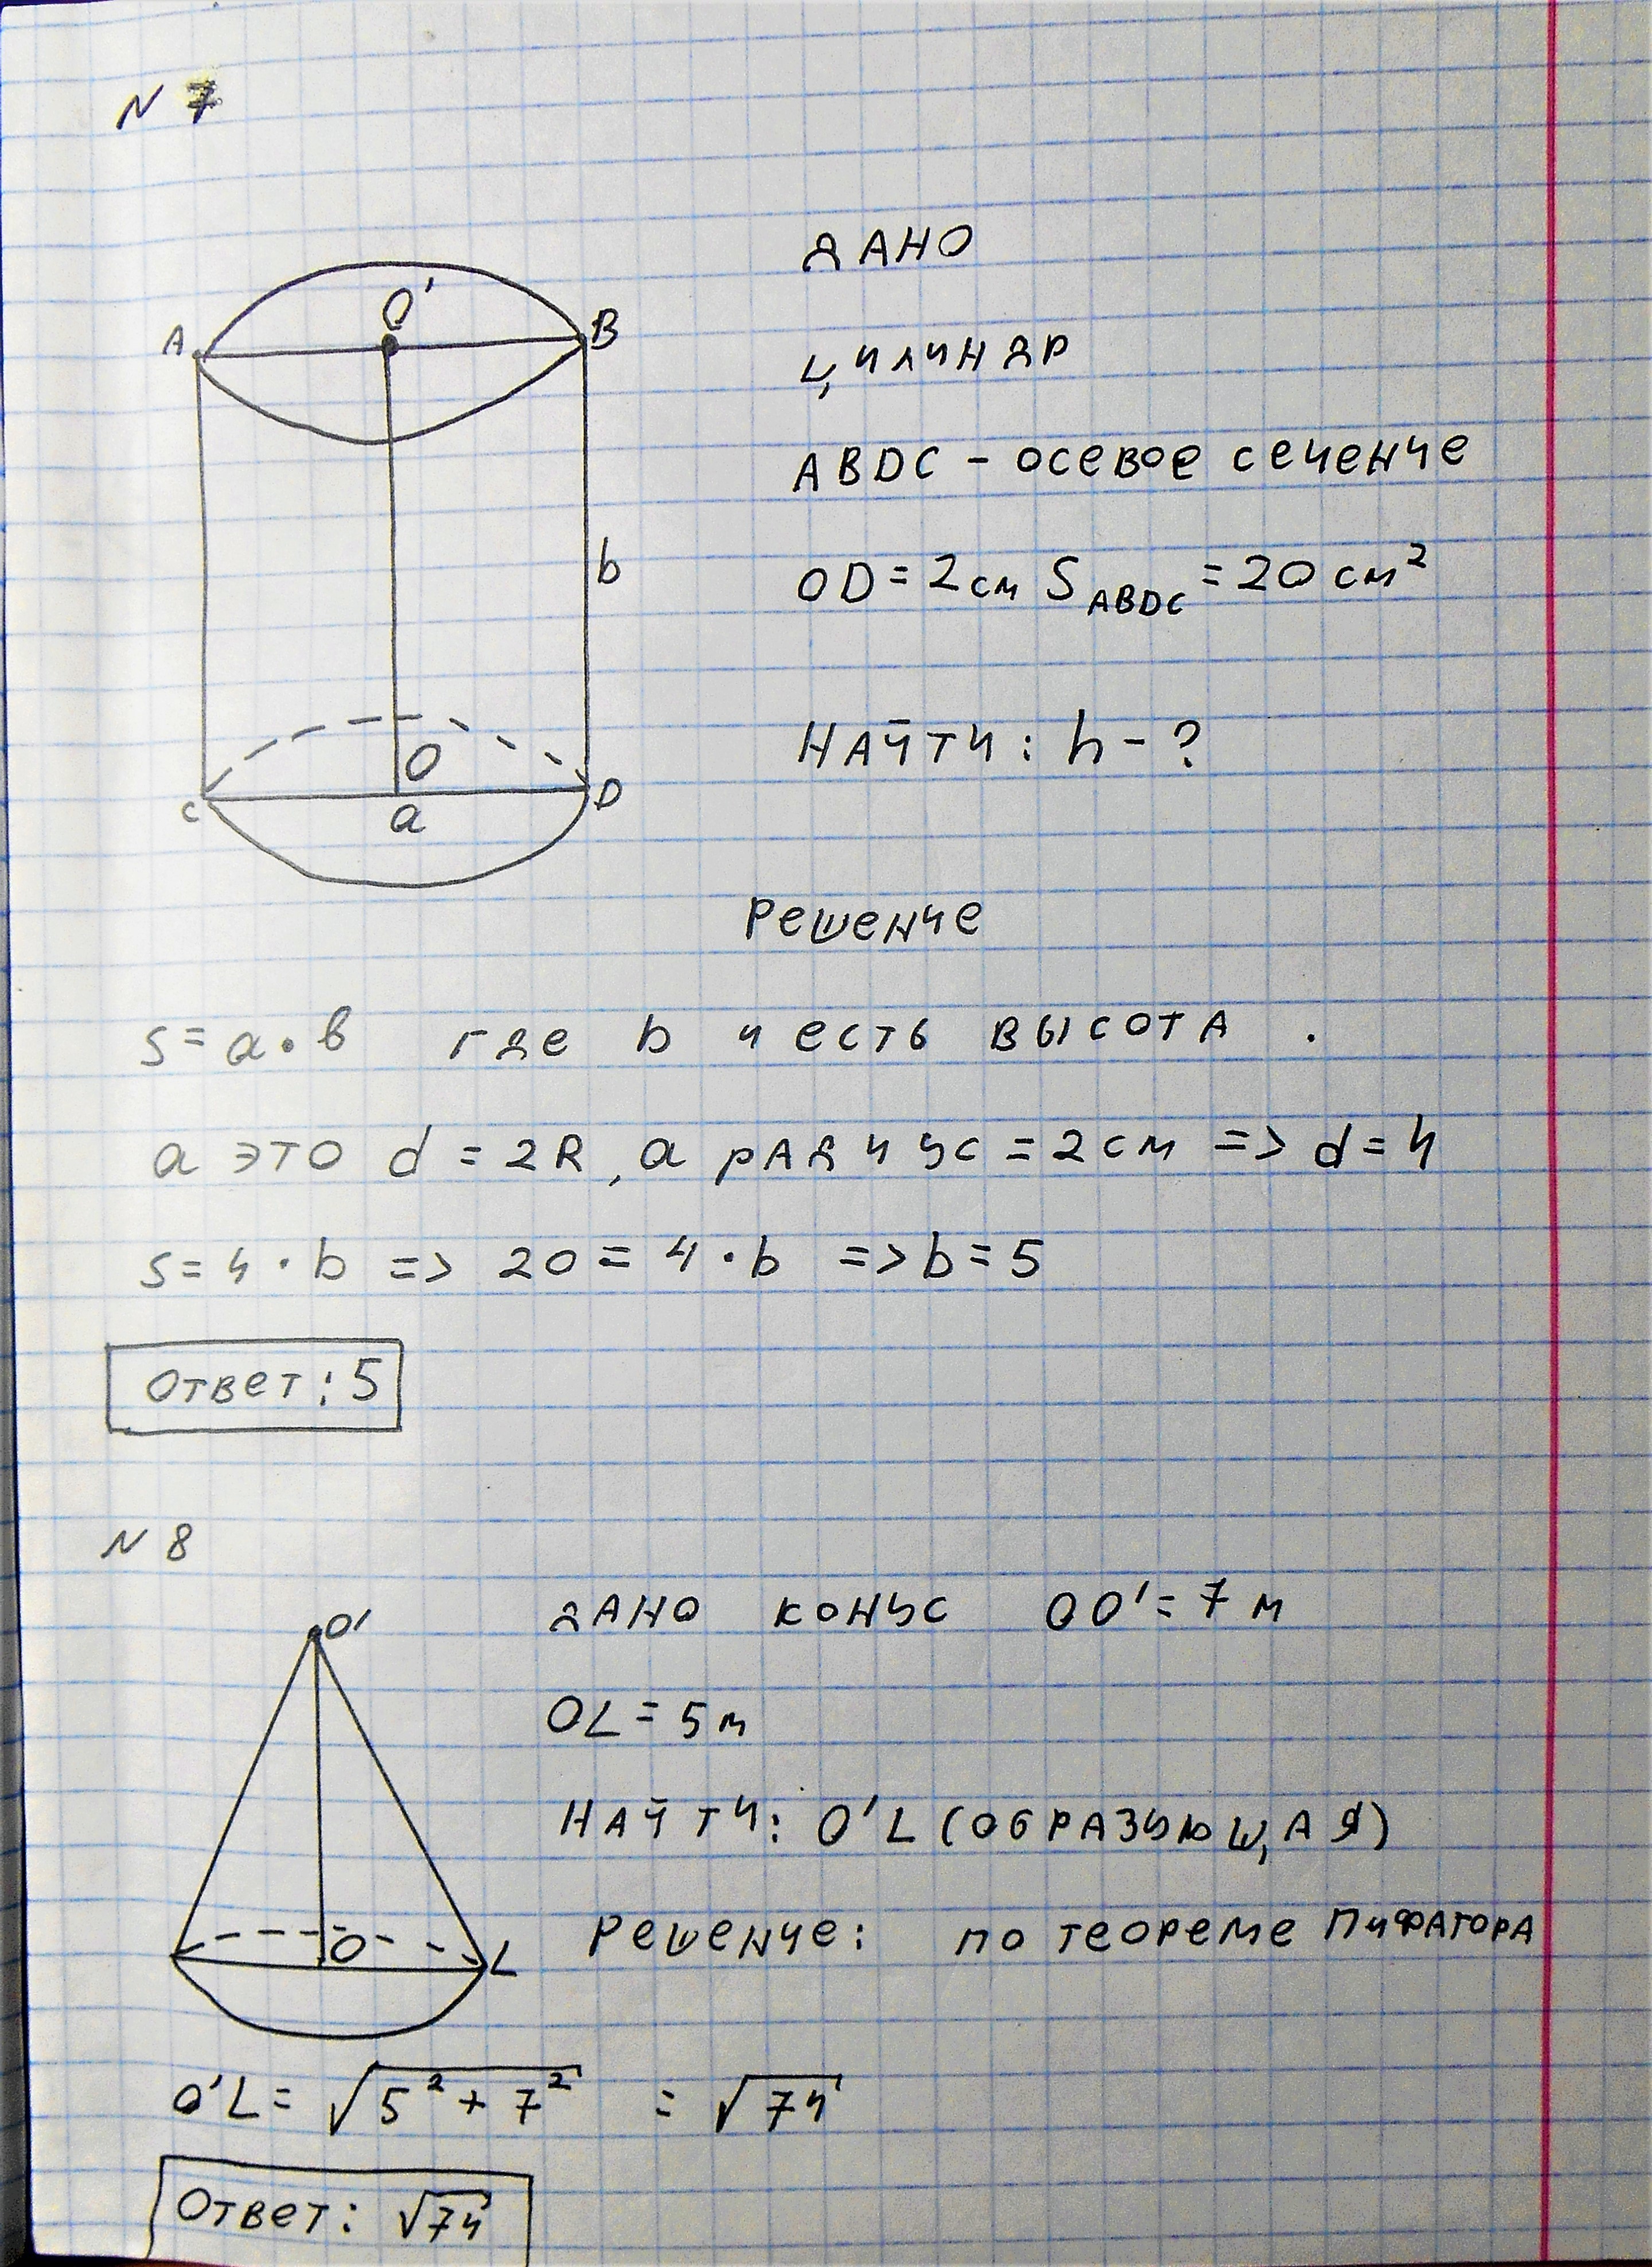 N 7
O'
A
B
b
O
C
a
D
ДАНО
ЦИЛИНДР
ABDC - ОСЕВОЕ СЕЧЕНИЕ
OD = 2 см S ABDC = 20 см²
НАЙТИ : h - ?
РЕШЕНИЕ
S = a · b где b и есть высота .
a это d = 2R , а радиус = 2 см => d = 4
S = 4 · b => 20 = 4 · b => b = 5
Ответ : 5
N 8
O'
O
L
ДАНО КОНУС OO' = 7 м
OL = 5 м
НАЙТИ : O'L (ОБРАЗУЮЩАЯ)
РЕШЕНИЕ : ПО ТЕОРЕМЕ ПИФАГОРА
O'L = √5² + 7² = √74
Ответ : √74